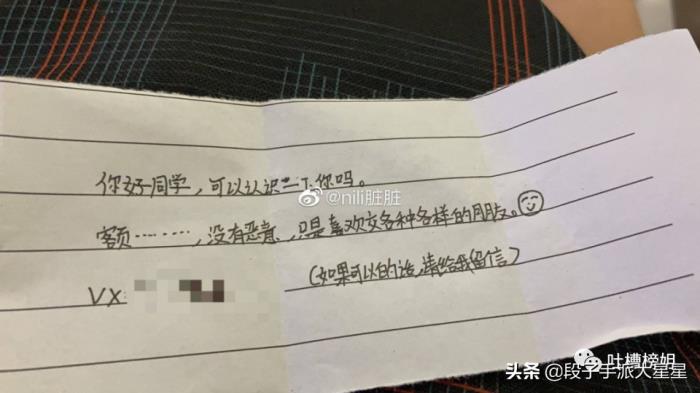 你好同学，可以认识一下你吗。
@nili脏脏
客页………，没有恶意，只是喜欢交各种各样的朋友。
(如果可以的话，请给我留信)
VX
吐槽榜姐
头条@段子手派大星星